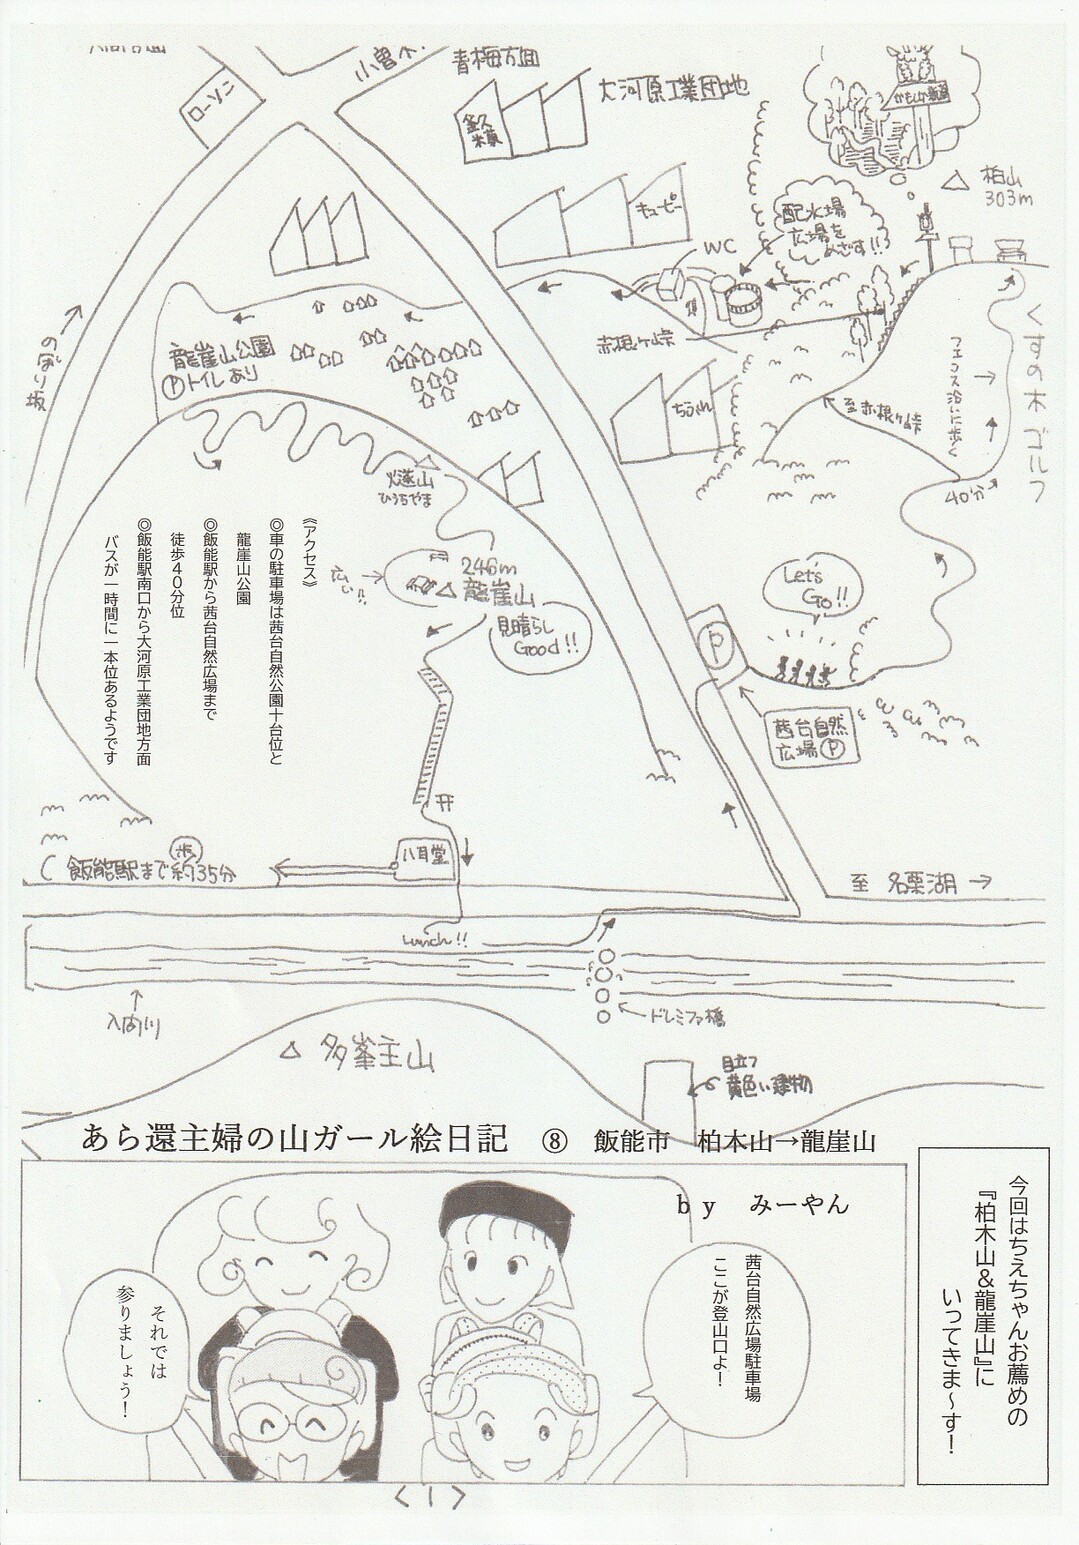 小曽木
青梅方面
ローソン
大河原工業団地
かもしか新道
柏山
303m
キューピー
配水場
広場を
めざす!!
WC
赤根ヶ峠
至赤根ヶ峠
フェンス沿いに歩く
くすの木ゴルフ
40分
のぼり坂
龍崖山公園
Ⓟトイレあり
燧山
ひうちやま
246m
龍崖山
広い!!
見晴らし
Good!!
Let's
Go!!
P
茜台自然
広場Ⓟ
《アクセス》
◎車の駐車場は茜台自然公園十台位と
龍崖山公園
◎飯能駅から茜台自然広場まで
徒歩40分位
◎飯能駅南口から大河原工業団地方面
バスが一時間に一本位あるようです
八耳堂
歩
飯能駅まで約35分
至 名栗湖→
Lunch!!
入間川
ドレミファ橋
多峯主山
目立つ
黄色い建物
あら還主婦の山ガール絵日記 ⑧ 飯能市 柏木山→龍崖山
by みーやん
今回はちえちゃんお薦めの
『柏木山&龍崖山』に
いってきま〜す!
茜台自然広場駐車場
ここが登山口よ!
それでは
参りましょう!
<1>